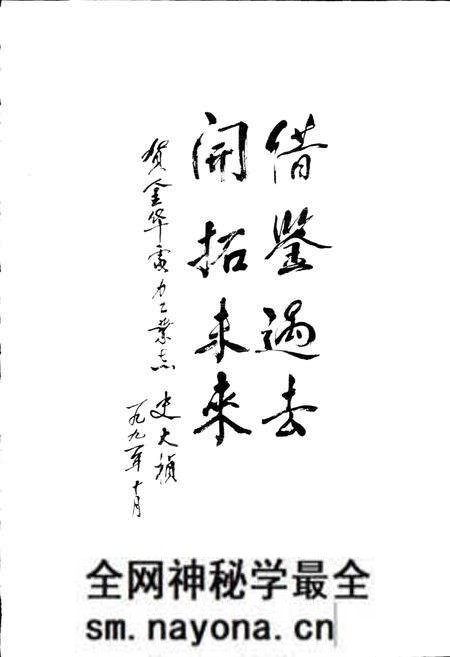 借鉴過去
開拓未來
贺金华電力工業志
史大桢
一九九一年十月
全网神秘学最全
sm.nayona.cn